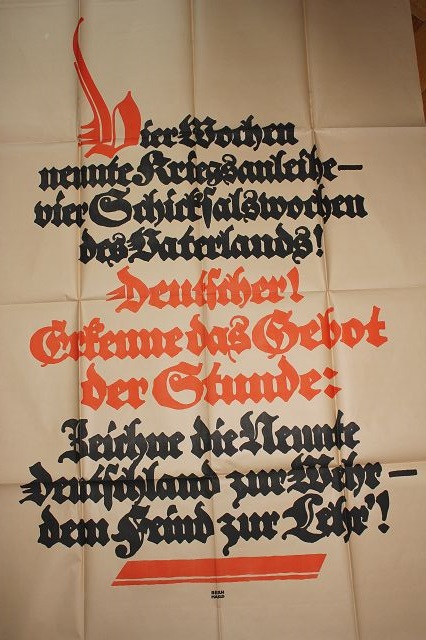 Vier Wochen
neunte Kriegsanleihe—
vier Schicksalswochen
des Vaterlands!
Deutscher!
Erkenne das Gebot
der Stunde:
Zeichne die Neunte
Deutschland zur Wehr—
dem Feind zur Lehr'!
BERN
HARD